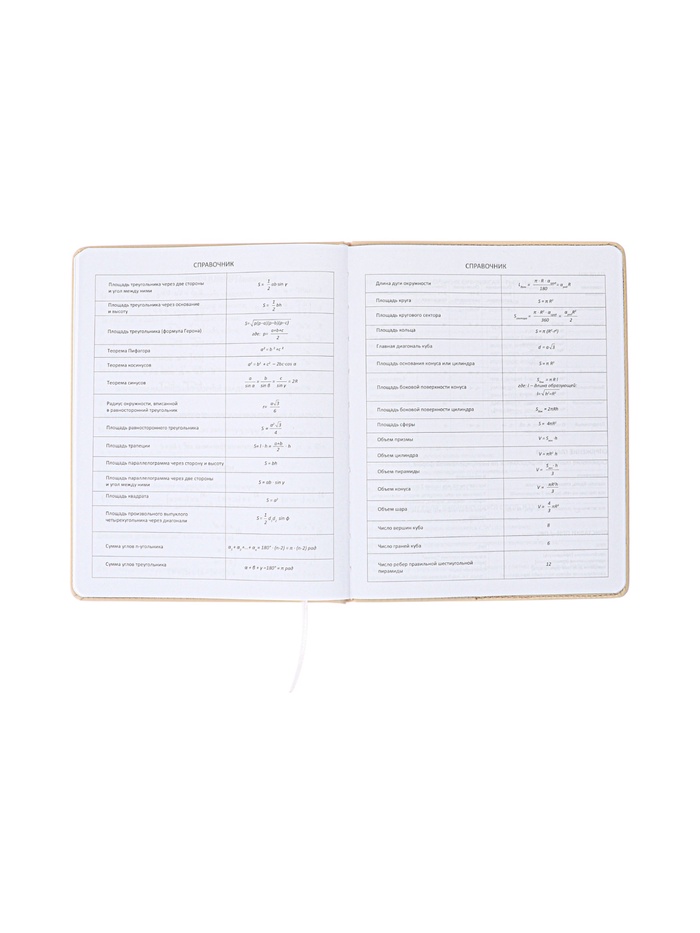 СПРАВОЧНИК
Площадь треугольника через две стороны
и угол между ними
S= 1/2 ab·sin γ
Площадь треугольника через основание
и высоту
S = 1/2 bh
Площадь треугольника (формула Герона)
S=√p(p-a)(p-b)(p-c)
где: p= a+b+c/2
Теорема Пифагора
Теорема косинусов
a² = b² + c² - 2bc·cos α
Теорема синусов
a/sin α = b/sin β = c/sin γ = 2R
Радиус окружности, вписанной
в равносторонний треугольник
r= a√3/6
Площадь равностороннего треугольника
S = a²√3/4
Площадь трапеции
S= l · h = a+b/2 · h
Площадь параллелограмма через сторону и высоту
S = bh
Площадь параллелограмма через две стороны
и угол между ними
S = ab · sin γ
Площадь квадрата
S = a²
Площадь произвольного выпуклого
четырёхугольника через диагонали
S= 1/2 d₁d₂ sin ϕ
Сумма углов n-угольника
Сумма углов треугольника
α + β + γ =180° = π рад
СПРАВОЧНИК
Длина дуги окружности
Площадь круга
S = π R²
Площадь кругового сектора
Площадь кольца
S = π (R²-r²)
Главная диагональ куба
d = a√3
Площадь основания конуса или цилиндра
S = π R²
Площадь боковой поверхности конуса
Sбок = π R l
где: l – длина образующей;
Площадь боковой поверхности цилиндра
Sбок = 2πRh
Площадь сферы
S = 4πR²
Объем призмы
V = Sосн h
Объем цилиндра
V = πR² h
Объем пирамиды
V = Sосн h/3
Объем конуса
V = πR²h/3
Объем шара
V = 4/3 πR³
Число вершин куба
8
Число граней куба
6
Число ребер правильной шестиугольной
пирамиды
12